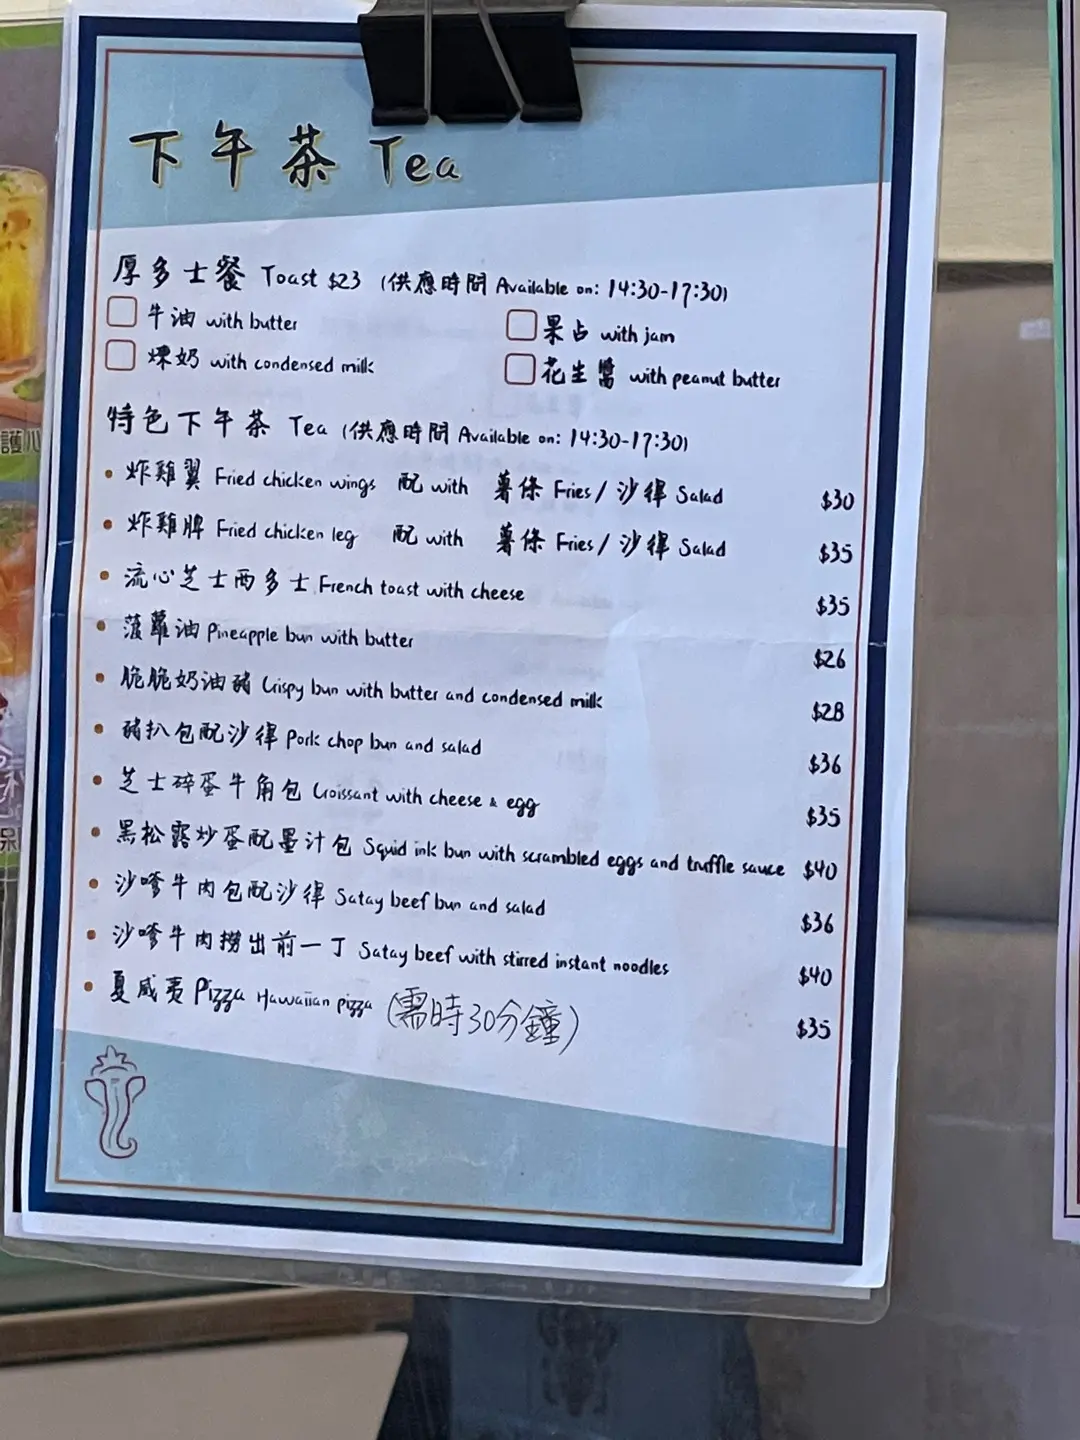 下午茶 Tea
厚多士餐 Toast $23 (供應時間 Available on: 14:30-17:30)
牛油 with butter
果占 with jam
煉奶 with condensed milk
花生醬 with peanut butter
特色下午茶 Tea (供應時間 Available on: 14:30-17:30)
• 炸雞翼 Fried chicken wings 配 with 薯條 Fries / 沙律 Salad $30
• 炸雞脾 Fried chicken leg 配 with 薯條 Fries / 沙律 Salad $35
• 流心芝士西多士 French toast with cheese $35
• 菠蘿油 Pineapple bun with butter $26
• 脆脆奶油豬 Crispy bun with butter and condensed milk $28
• 豬扒包配沙律 Pork chop bun and salad $36
• 芝士碎蛋牛角包 Croissant with cheese & egg $35
• 黑松露炒蛋配墨汁包 Squid ink bun with scrambled eggs and truffle sauce $40
• 沙嗲牛肉包配沙律 Satay beef bun and salad $36
• 沙嗲牛肉撈出前一丁 Satay beef with stirred instant noodles $40
• 夏威夷 Pizza Hawaiian pizza (需時30分鐘) $35
護心